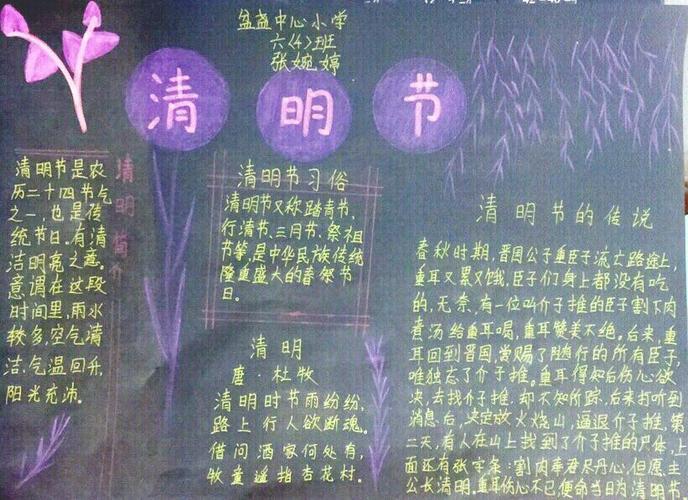 盆盏中心小学
六〈4〉班
张婉婷
清明节
清明简介
清明节是农
历二十四节气
之一,也是传
统节日。有清
洁明亮之意。
意谓在这段
时间里,雨水
较多,空气清
洁,气温回升,
阳光充沛。
清明节习俗
清明节又称踏青节、
行清节、三月节、祭祖
节等,是中华民族传统
隆重盛大的春祭节
日。
清明
唐·杜牧
清明时节雨纷纷,
路上行人欲断魂。
借问酒家何处有,
牧童遥指杏花村。
清明节的传说
春秋时期,晋国公子重臣子流亡路途上,
重耳又累又饿,臣子们身上都没有吃
的,无奈,有一位叫介子推的臣子割下肉
煮汤给重耳喝,重耳赞美不绝。后来,重
耳回到晋国,赏赐了随行的所有臣子,
唯独忘了介子推。重耳得知后伤心欲
决,去找介子推,却不知所踪,后来打听到
消息后,决定放火烧山,逼退介子推,第
二天,有人在山上找到了介子推的尸体,上
面还有张字条:割肉奉君尽丹心,但愿主
公长清明。重耳伤心不已,便命当日为清明节